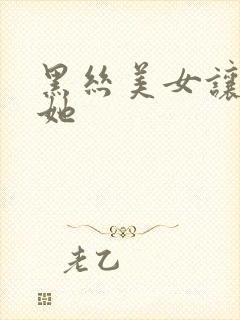 黑丝美女讓
她
老乙